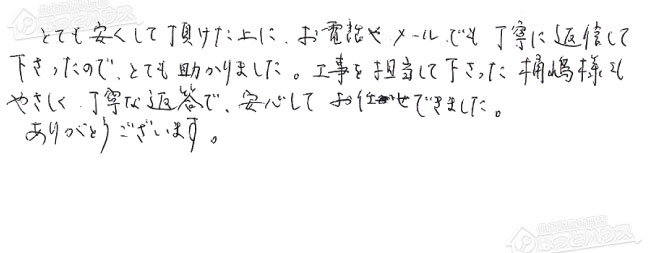 とても安くして頂けた上に、お電話や メールでも 丁寧に返信して
下さったので、とても助かりました。工事を担当して下さった 桶嶋様も
やさしく 丁寧な返答で、安心して お任せできました。
ありがとうございます。